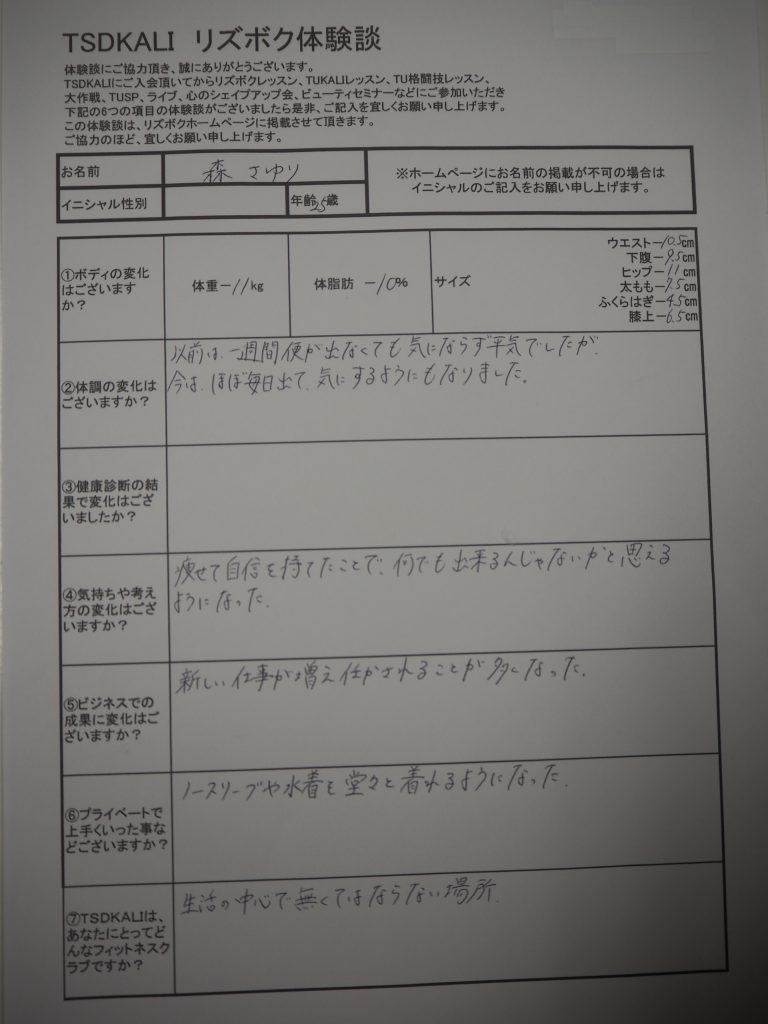 TSDKALI リズボク体験談
体験談にご協力頂き、誠にありがとうございます。
TSDKALIにご入会頂いてからリズボクレッスン、TUKALIレッスン、TU格闘技レッスン、
大作戦、TUSP、ライブ、心のシェイプアップ会、ビューティセミナーなどにご参加いただき
下記の6つの項目の体験談がございましたら是非、ご記入を宜しくお願い申し上げます。
この体験談は、リズボクホームページに掲載させて頂きます。
ご協力のほど、宜しくお願い申し上げます。
お名前 森 さゆり
※ホームページにお名前の掲載が不可の場合は
イニシャルのご記入をお願い申し上げます。
イニシャル性別 年齢25歳
①ボディの変化
はございます
か?
体重-11kg 体脂肪 -10% サイズ
ウエスト-10.5cm
下腹-9.5cm
ヒップ-11cm
太もも-7.5cm
ふくらはぎ-4.5cm
膝上-6.5cm
②体調の変化は
ございますか?
以前は、一週間便が出なくても気にならず平気でしたが、
今は、ほぼ毎日出て、気にするようにもなりました。
③健康診断の結
果で変化はござ
いましたか?
④気持ちや考え
方の変化はござ
いますか?
痩せて自信を持てたことで、何でも出来るんじゃないかと思える
ようになった。
⑤ビジネスでの
成果に変化はご
ざいますか?
新しい仕事が増え任かされることが多くなった。
⑥プライベートで
上手くいった事な
どございますか?
ノースリーブや水着を堂々と着れるようになった。
⑦TSDKALIは、
あなたにとってど
んなフィットネスク
ラブですか?
生活の中心で無くてはならない場所.